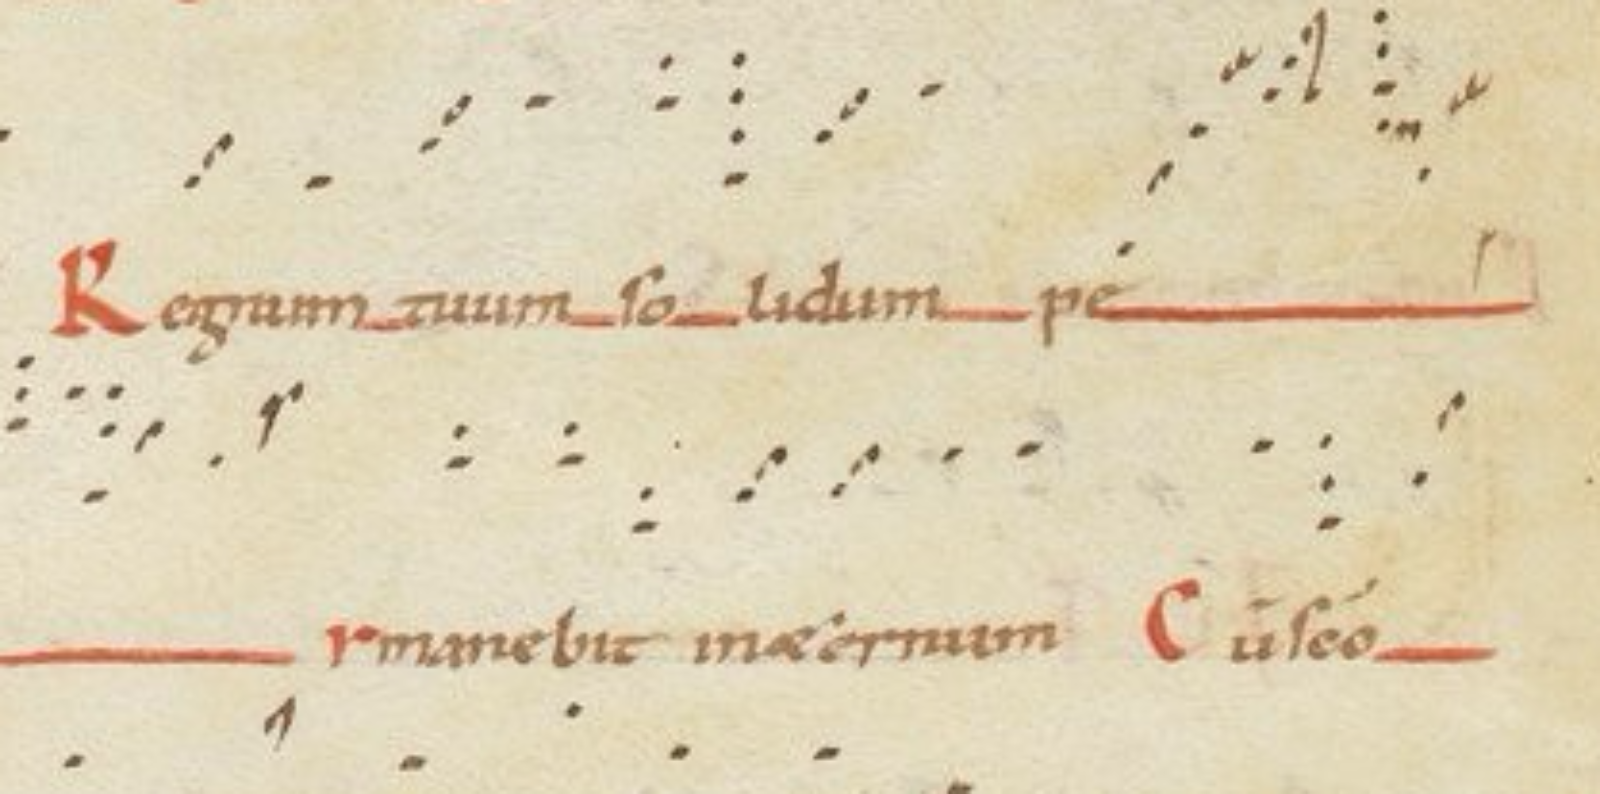 Regnum tuum so lidum pé
rmanebit inæternum Cūseó